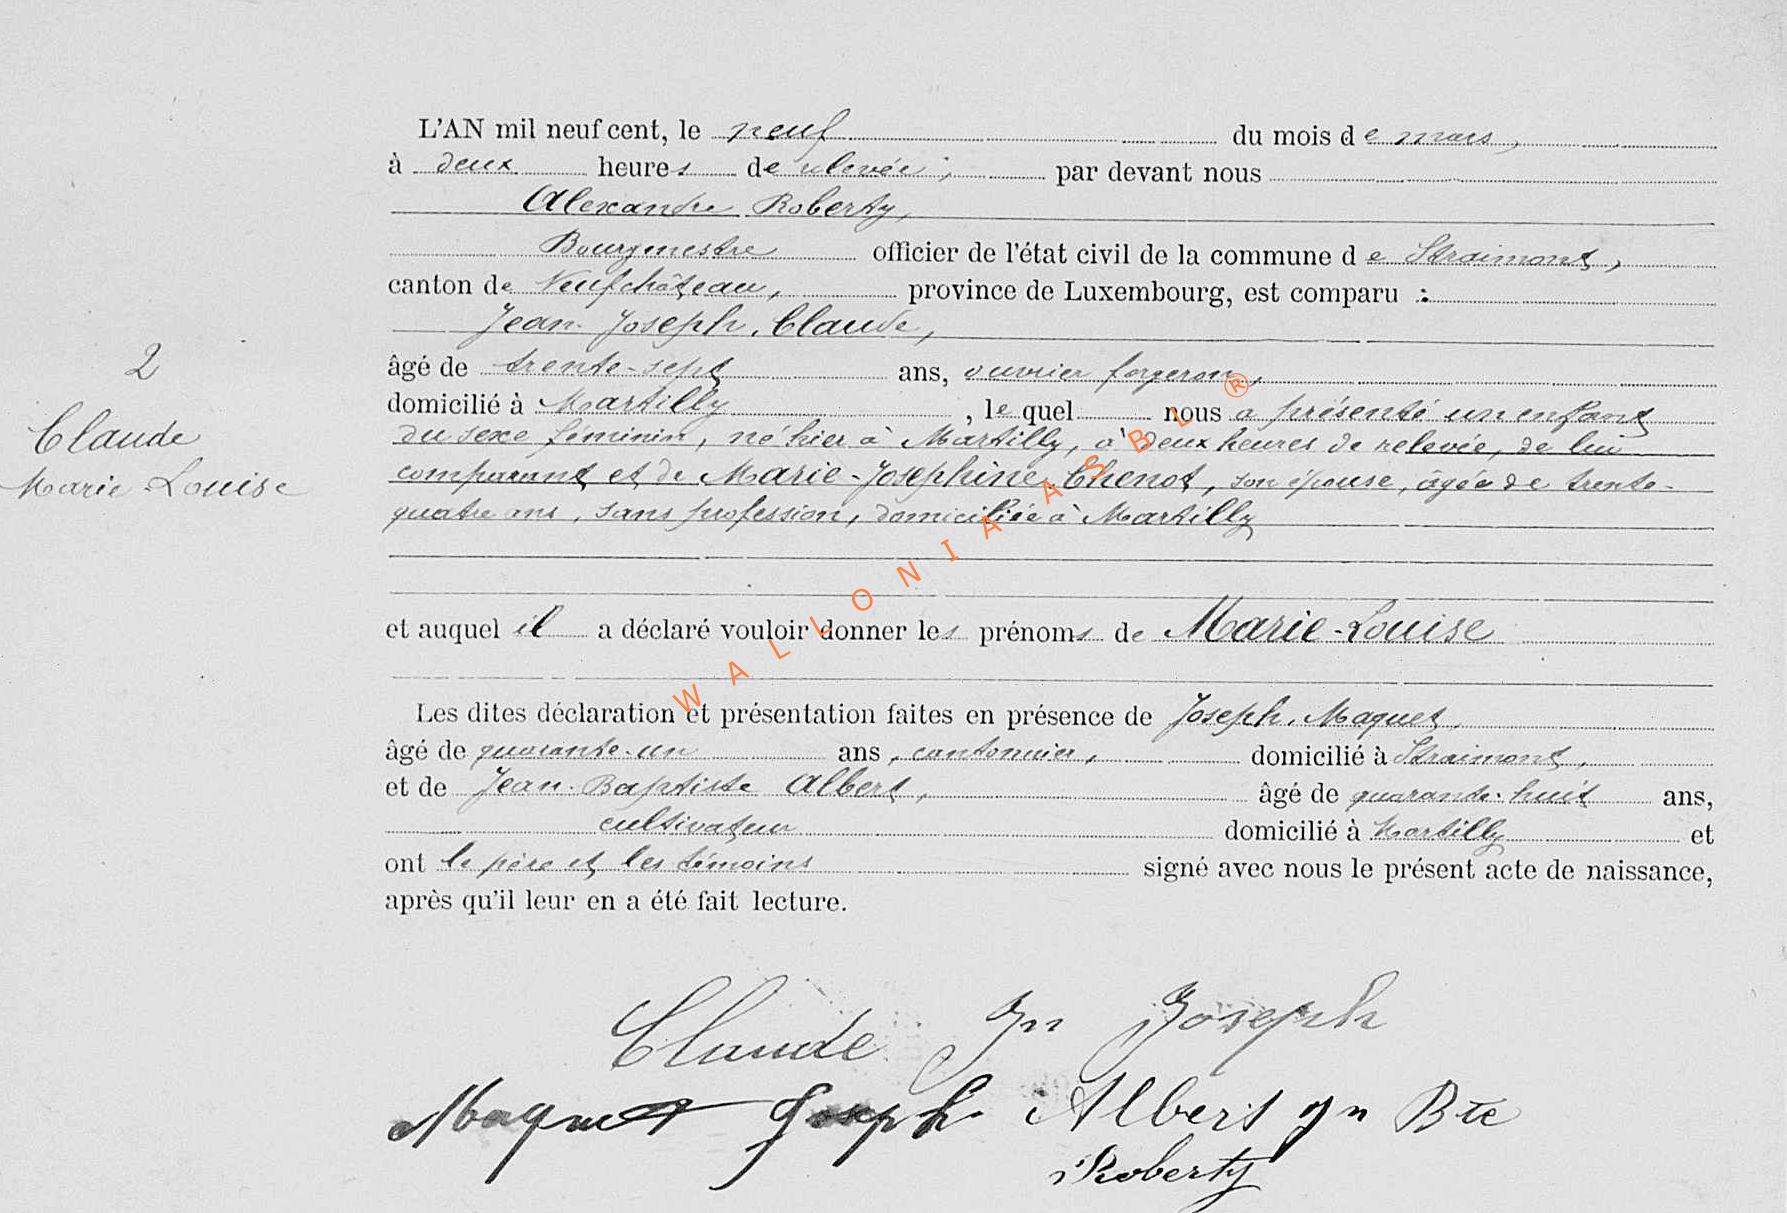 L'AN mil neuf cent, le neuf du mois de mars,
à deux heures de relevée, par devant nous
Alexandre Roberty,
Bourgmestre officier de l'état civil de la commune de Straimont,
canton de Neufchâteau, province de Luxembourg, est comparu :
Jean Joseph Claude,
âgé de trente-sept ans, ouvrier forgeron,
domicilié à Martilly, le quel nous a présenté un enfant
2
Claude
Marie-Louise
du sexe féminin, né hier à Martilly, à deux heures de relevée, de lui
comparant et de Marie-Joséphine Chenot, son épouse, âgée de trente-
quatre ans, sans profession, domiciliée à Martilly
et auquel il a déclaré vouloir donner les prénoms de Marie-Louise
Les dites déclaration et présentation faites en présence de Joseph Maquet,
âgé de quarante-un ans, cantonnier, domicilié à Straimont,
et de Jean-Baptiste Albert, âgé de quarante-huit ans,
cultivateur domicilié à Martilly et
ont le père et les témoins signé avec nous le présent acte de naissance,
après qu'il leur en a été fait lecture.
Claude Jn Joseph
Maquet Joseph Albert Jn Bte
Roberty
WALLONIA ASBL ®